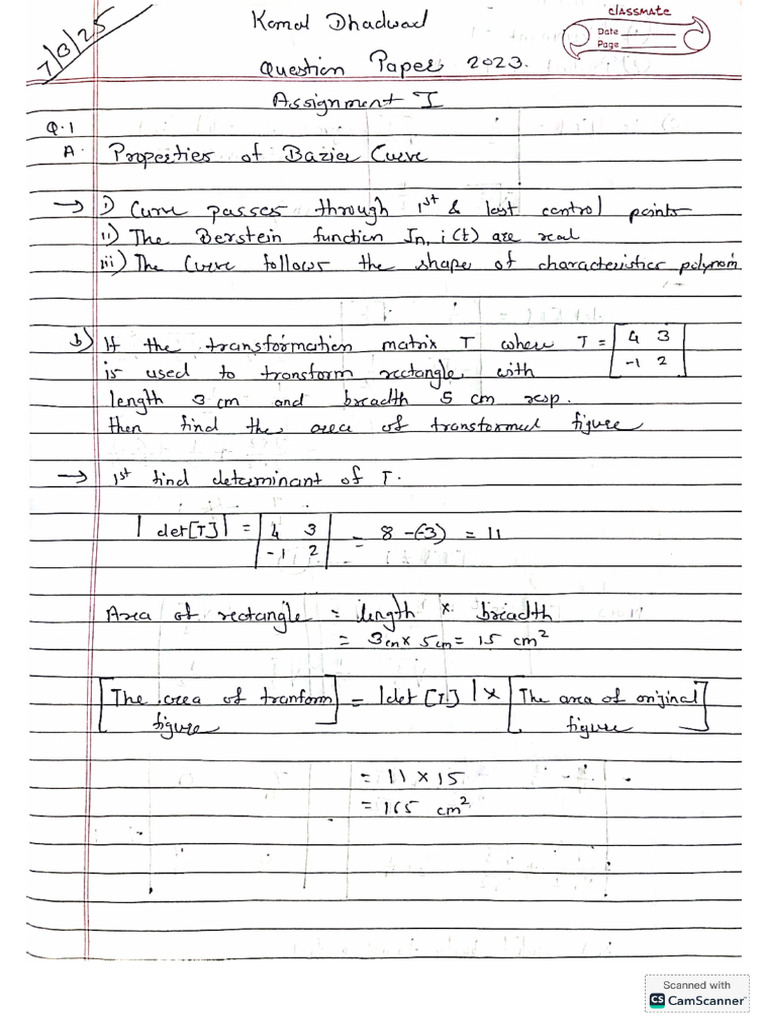 7/3/25
Komal Dhadwad
classmate
Date
Page
Question Paper 2023.
Assignment I
Q.1
A. Properties of Bazier Curve
→ i) Curve passes through 1st & last control points
ii) The Berstein function Jn,i(t) are real
iii) The Curve follows the shape of characteristics polynom
b) If the transformation matrix T where T = [4 3
-1 2]
is used to transform rectangle with
length 3 cm and breadth 5 cm resp.
then find the area of transformed figure
→ 1st find determinant of T.
|det[T]| = |4 3
-1 2| = 8 -(-3) = 11
Area of rectangle = length × breadth
= 3cm × 5cm = 15 cm²
[The area of tranform figure] = |det [T]| × [The area of original figure]
= 11 × 15
= 165 cm²
Scanned with
CS CamScanner